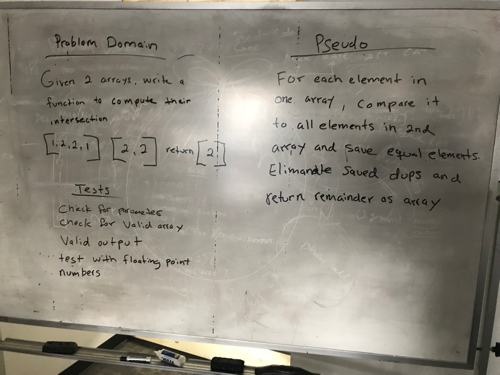 Problem Domain
Given 2 arrays, write a
function to compute their
intersection
[1,2,2,1] [2,2] return [2]
Tests
Check for parameter
check for valid array
Valid output
test with floating point
numbers
Pseudo
For each element in
one array, compare it
to all elements in 2nd
array and save equal elements.
Elimandte saved dups and
return remainder as array